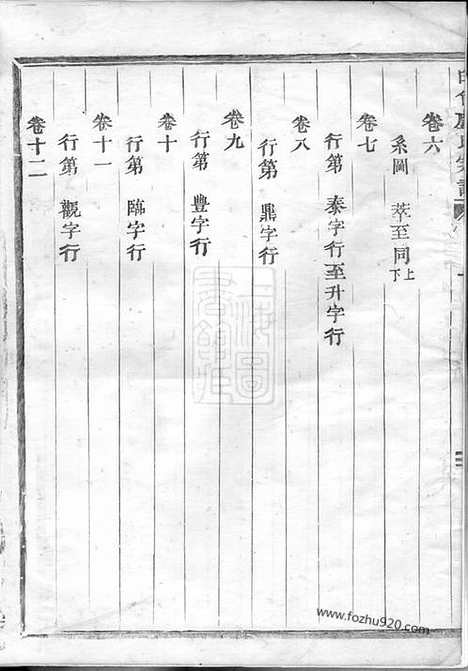 卷六
系圖 萃至同上下
卷七
行第 泰字行至升字行
卷八
行第 鼎字行
卷九
行第 豐字行
卷十
行第 臨字行
卷十一
行第 觀字行
卷十二
www.fozhu920.com